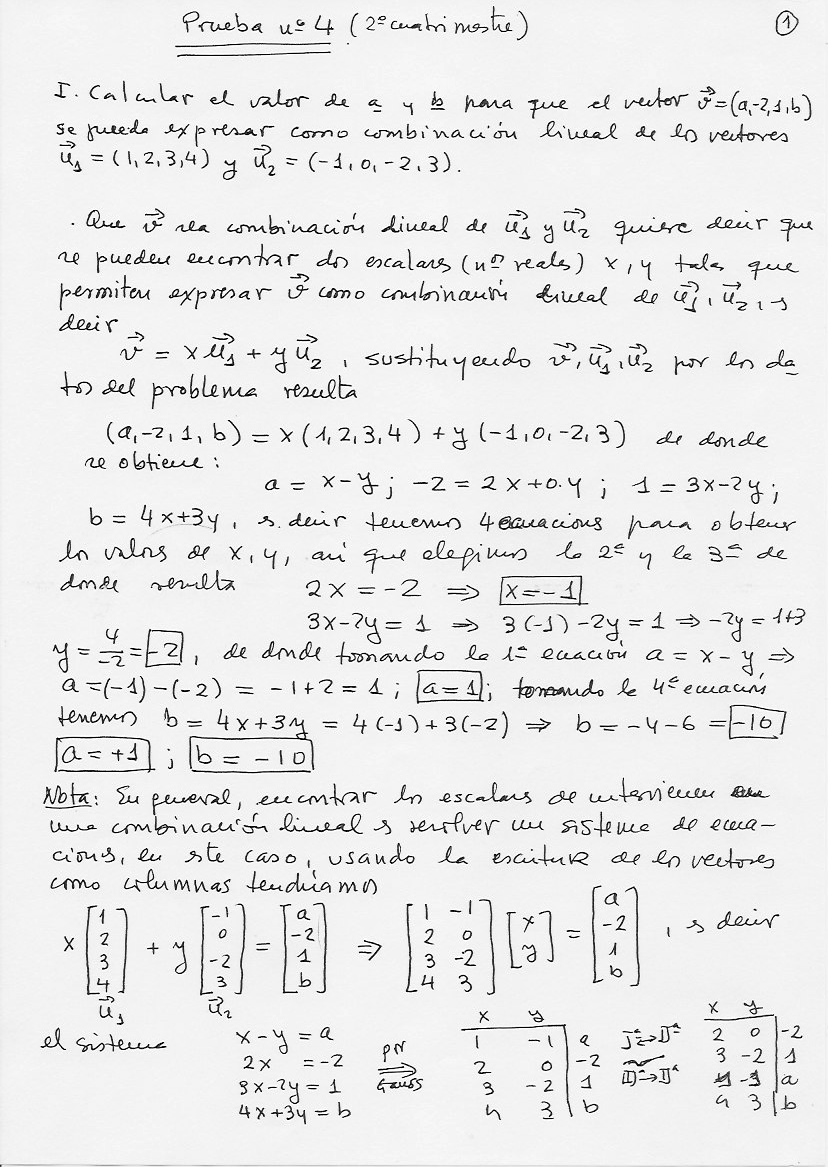 Prueba nº 4 (2º cuatrimestre) ①
I. Calcular el valor de a y b para que el vector v⃗=(a,-2,1,b)
se pueda expresar como combinación lineal de los vectores
u⃗₁ = (1,2,3,4) y u⃗₂ = (-1,0,-2,3).
. Que v⃗ sea combinación lineal de u⃗₁ y u⃗₂ quiere decir que
se pueden encontrar dos escalares (nos reales) x, y tales que
permiten expresar v⃗ como combinación lineal de u⃗₁, u⃗₂, es
decir
v⃗ = x u⃗₁ + y u⃗₂, sustituyendo v⃗, u⃗₁, u⃗₂ por los da
tos del problema resulta
(a,-2,1,b) = x(1,2,3,4) + y(-1,0,-2,3) de donde
se obtiene:
a = x-y; -2 = 2x+0·y; 1 = 3x-2y;
b = 4x+3y, es decir tenemos 4 ecuaciones para obtener
los valores de x, y, así que elegimos la 2ª y la 3ª de
donde resulta 2x = -2 ⇒ x=-1
3x-2y = 1 ⇒ 3(-1)-2y = 1 ⇒ -2y = 1+3
y = 4/-2 = -2, de donde tomando la 1ª ecuación a = x-y ⇒
a = (-1)-(-2) = -1+2 = 1; a=1; tomando la 4ª ecuación
tenemos b = 4x+3y = 4(-1)+3(-2) ⇒ b = -4-6 = -10
a = +1; b = -10
Nota: En general, encontrar los escalares de intervienen
una combinación lineal es resolver un sistema de ecua-
ciones, en este caso, usando la escritura de los vectores
como columnas tendríamos
x [1 2 3 4] + y [-1 0 -2 3] = [a -2 1 b] ⇒ [1 -1 2 0 3 -2 4 3] [x y] = [a -2 1 b], es decir
u⃗₁ u⃗₂
el sistema
x-y = a
2x = -2
3x-2y = 1
4x+3y = b
por
⇒
Gauss
x y
1 -1 | a
2 0 | -2
3 -2 | 1
4 3 | b
Iª→IIª
IIIª→IIª
x y
2 0 | -2
3 -2 | 1
1 -1 | a
4 3 | b